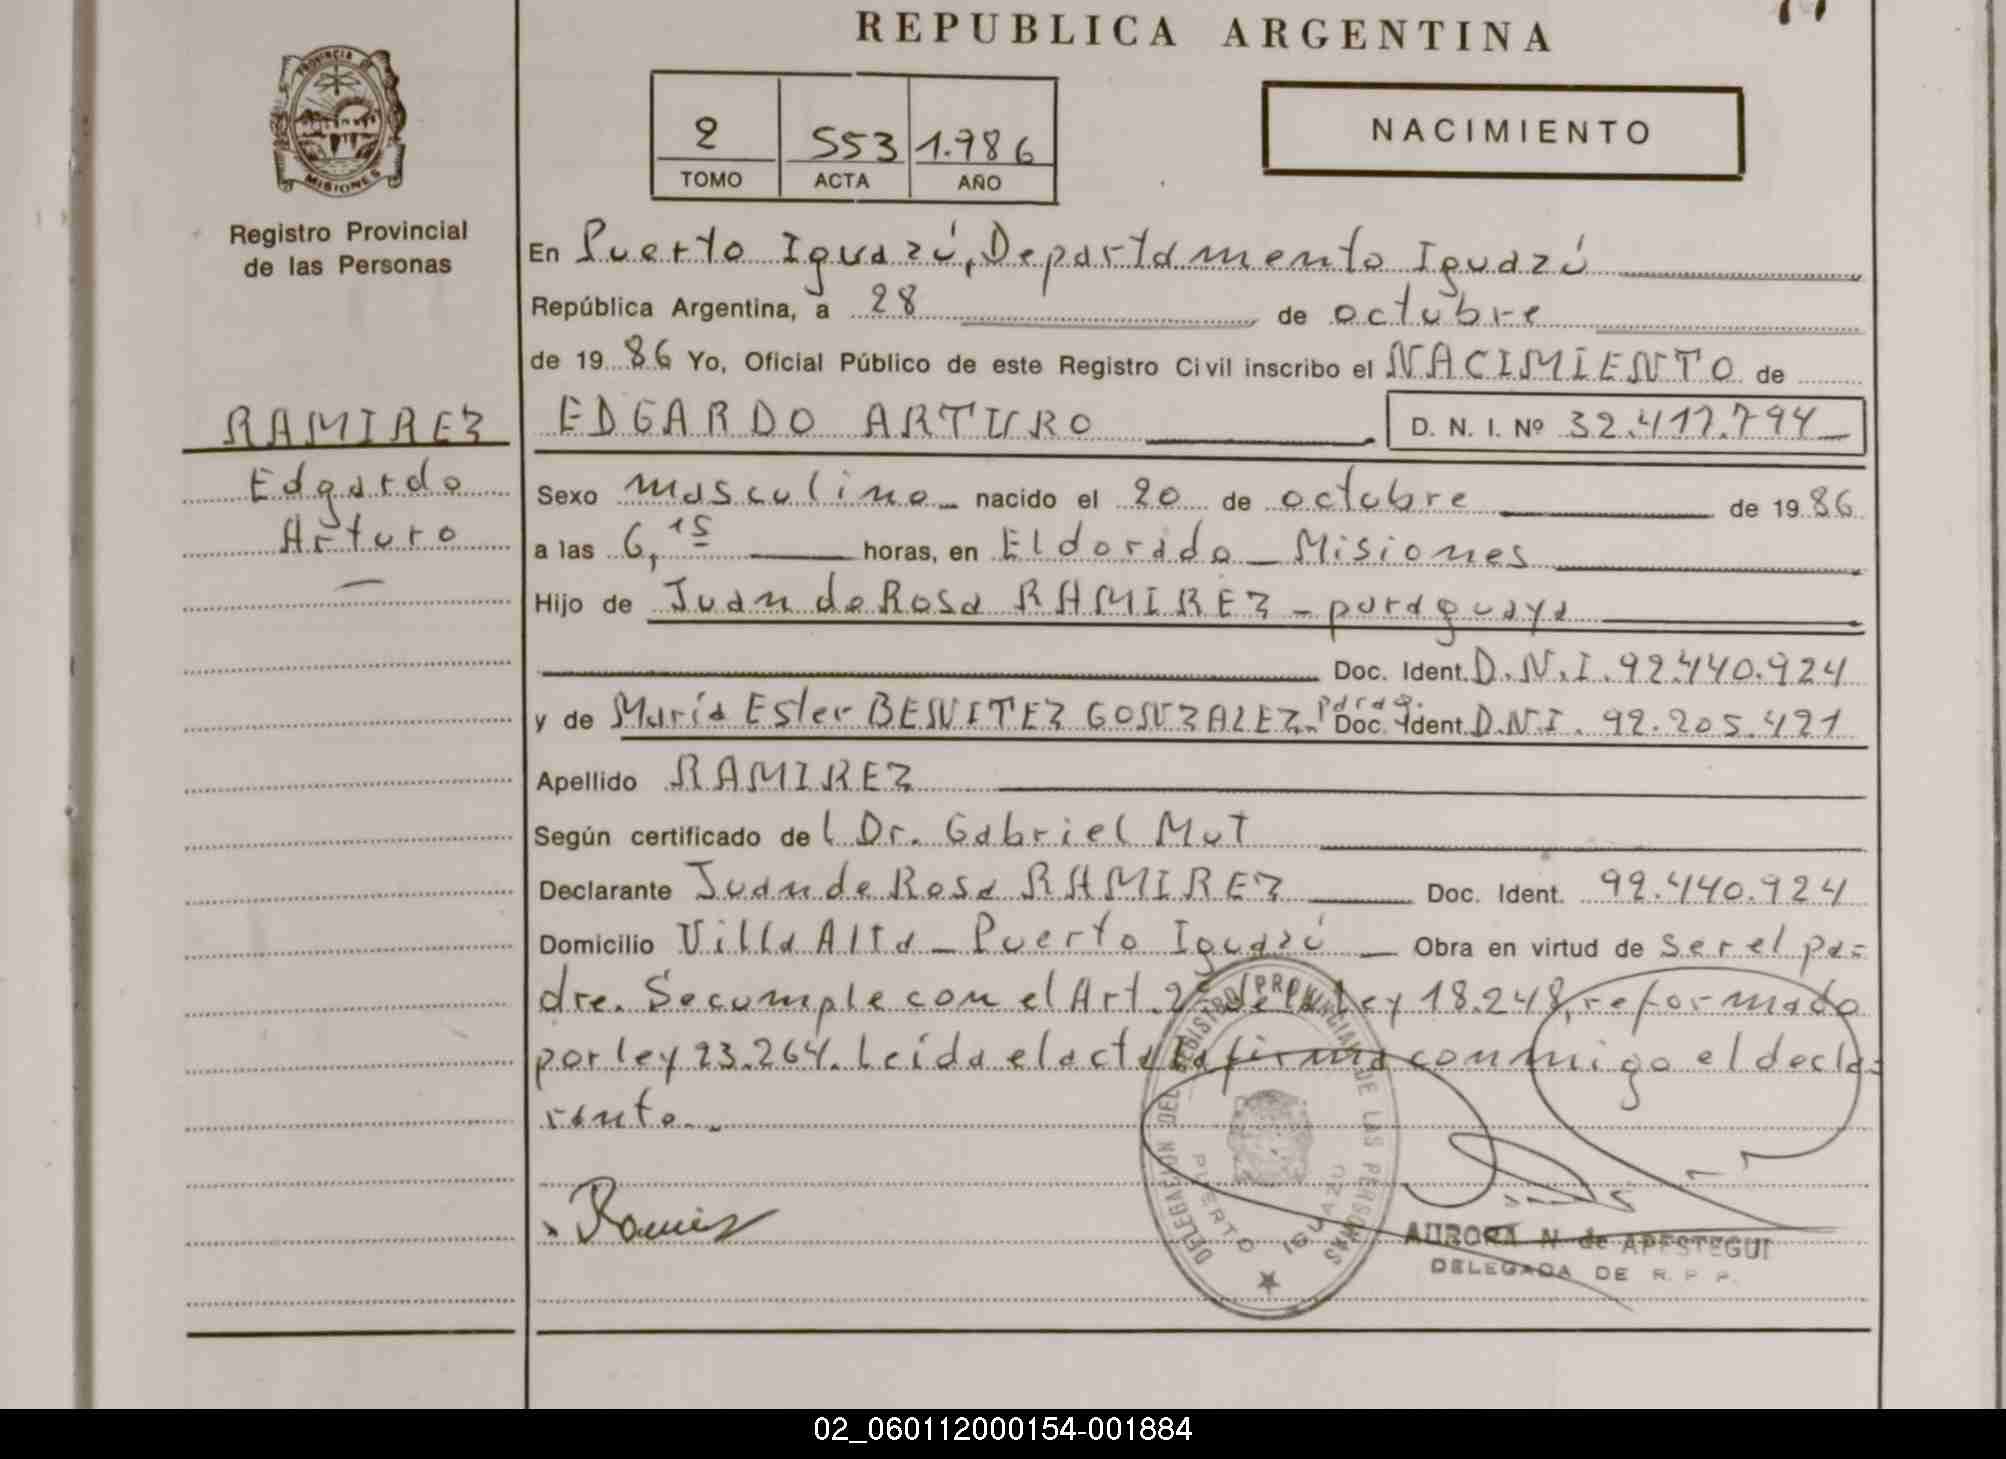 REPUBLICA ARGENTINA
PROVINCIA DE
MISIONES
Registro Provincial
de las Personas
2 553 1.986
TOMO ACTA AÑO
NACIMIENTO
En Puerto Iguazú, Departamento Iguazú
República Argentina, a 28 de octubre
de 19 86 Yo, Oficial Público de este Registro Civil inscribo el NACIMIENTO de
RAMIREZ
EDGARDO ARTURO D. N. I. Nº 32.417.794
Edgardo
Arturo
Sexo masculino nacido el 20 de octubre de 19 86
a las 6,15 horas, en Eldorado - Misiones
Hijo de Juan de Rosa RAMIREZ - paraguaya
Doc. Ident. D.N.I. 92.440.924
y de María Ester BENITEZ GONZALEZ - parag. Doc. Ident. D.N.I. 92.205.421
Apellido RAMIREZ
Según certificado de l Dr. Gabriel Mut
Declarante Juan de Rosa RAMIREZ Doc. Ident. 92.440.924
Domicilio Villa Alta - Puerto Iguazú - Obra en virtud de ser el pa=
dre. Se cumple con el Art. 2º de la Ley 18.248, reformado
por ley 23.264. Leída el acta la firma conmigo el decla=
rante.-
Ramirez
DELEGACION DEL REGISTRO PROVINCIAL DE LAS PERSONAS
PUERTO IGUAZU
AURORA N de APESTEGUI
DELEGADA DE R. P. P.
02_060112000154-001884